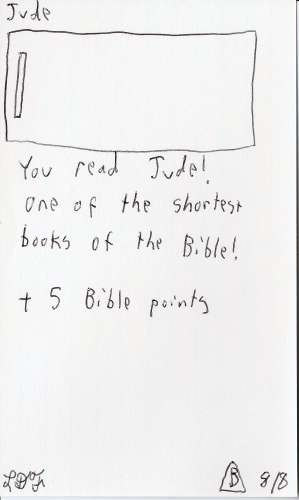 Jude
You read Jude!
one of the shortest
books of the Bible!
+ 5 Bible points
B 8/8